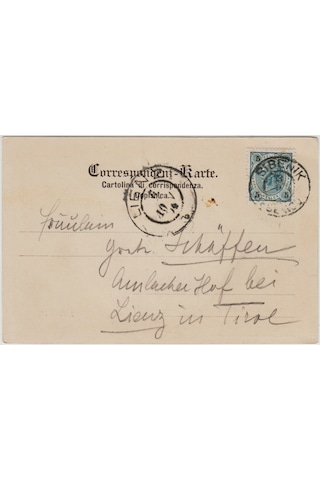 Correspondenz-Karte.
Cartolina di corrispondenza.
Dopisnica.
ŠIBENIK
LIENZ
5
Fräulein
Schäffer
Amlacher Hof bei
Lienz in Tirol